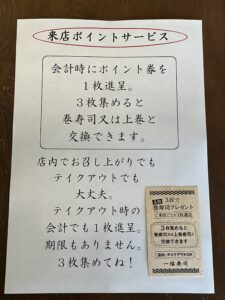 来店ポイントサービス
会計時にポイント券を
1枚進呈。
3枚集めると
巻寿司又は上巻と
交換できます。
店内でお召し上がりでも
テイクアウトでも
大丈夫。
テイクアウト時の
会計でも1枚進呈。
期限もありません。
3枚集めてね!
3枚で
巻寿司プレゼント
3枚集めると
巻寿司又は上巻寿司と
交換できます
一福寿司